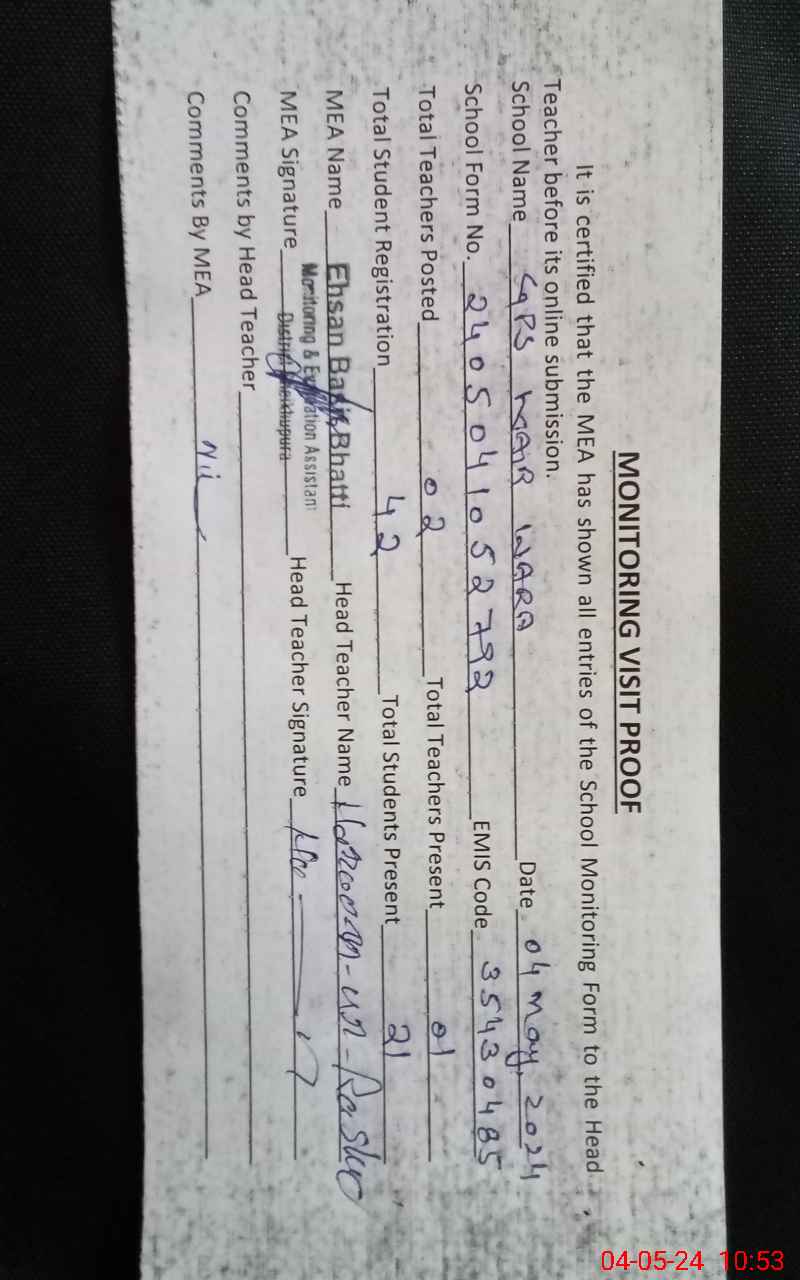 MONITORING VISIT PROOF
It is certified that the MEA has shown all entries of the School Monitoring Form to the Head
Teacher before its online submission.
School Name GPS MAIR WARA Date 04 May, 2024
School Form No. 2405041052792 EMIS Code 35430485
Total Teachers Posted 02 Total Teachers Present 01
Total Student Registration 42 Total Students Present 21
MEA Name Ehsan Bashir Bhatti Head Teacher Name Haroon-ur-Rashid
Monitoring & Evaluation Assistant
MEA Signature District Sheikhupura Head Teacher Signature
Comments by Head Teacher
Comments By MEA Nil
04-05-24 10:53